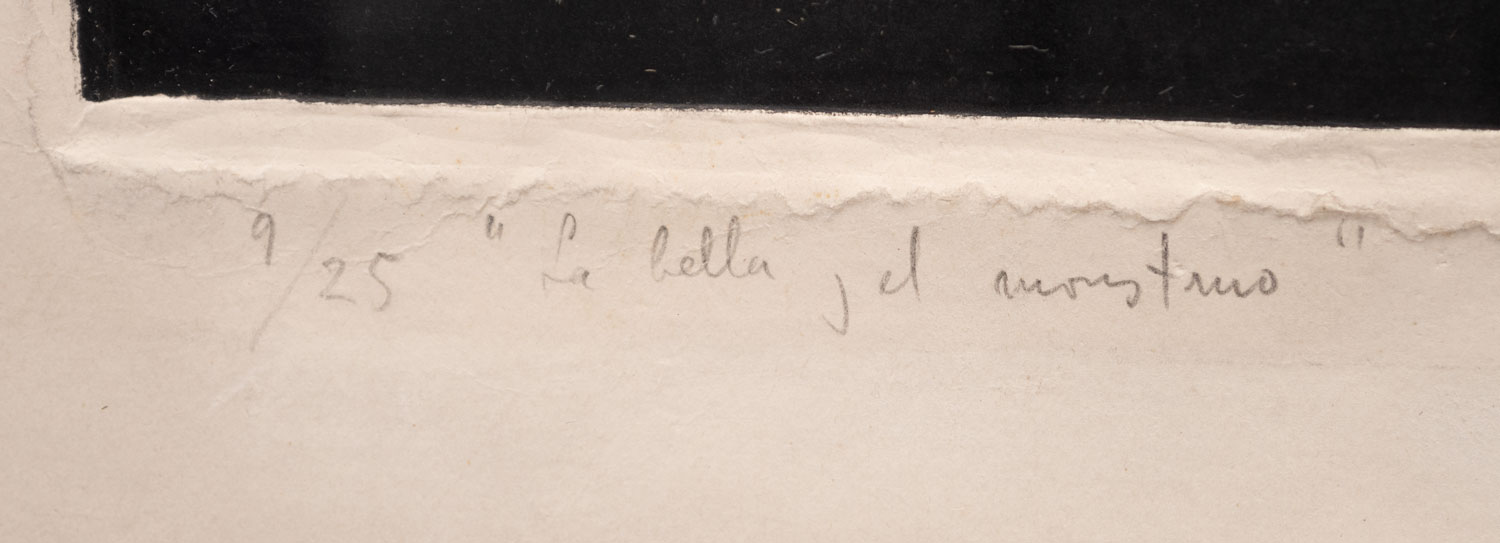 9/25 "La bella y el monstruo"